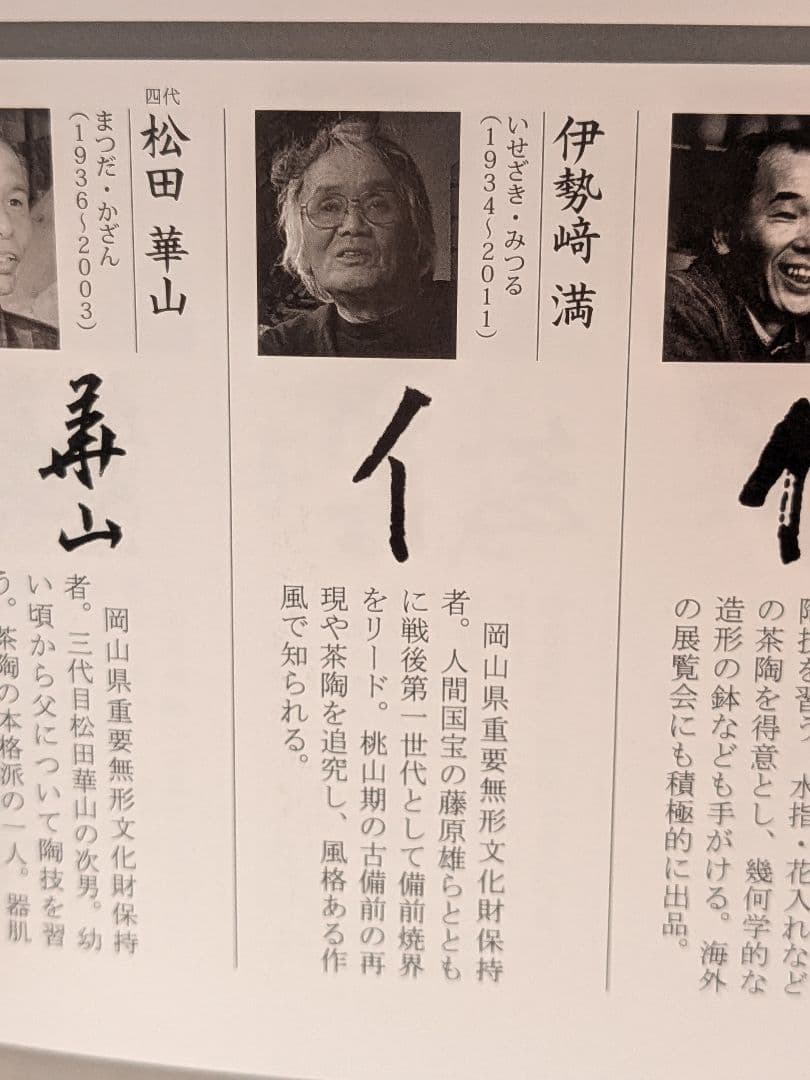 の茶陶を得意とし、幾何学的な
造形の鉢なども手がける。海外
の展覧会にも積極的に出品。
伊勢﨑 満
いせざき・みつる
（1934〜2011）
イ
岡山県重要無形文化財保持
者。人間国宝の藤原雄らととも
に戦後第一世代として備前焼界
をリード。桃山期の古備前の再
現や茶陶を追究し、風格ある作
風で知られる。
四代
松田 華山
まつだ・かざん
（1936〜2003）
華山
岡山県重要無形文化財保持
者。三代目松田華山の次男。幼
い頃から父について陶技を習
う。茶陶の本格派の一人。器肌